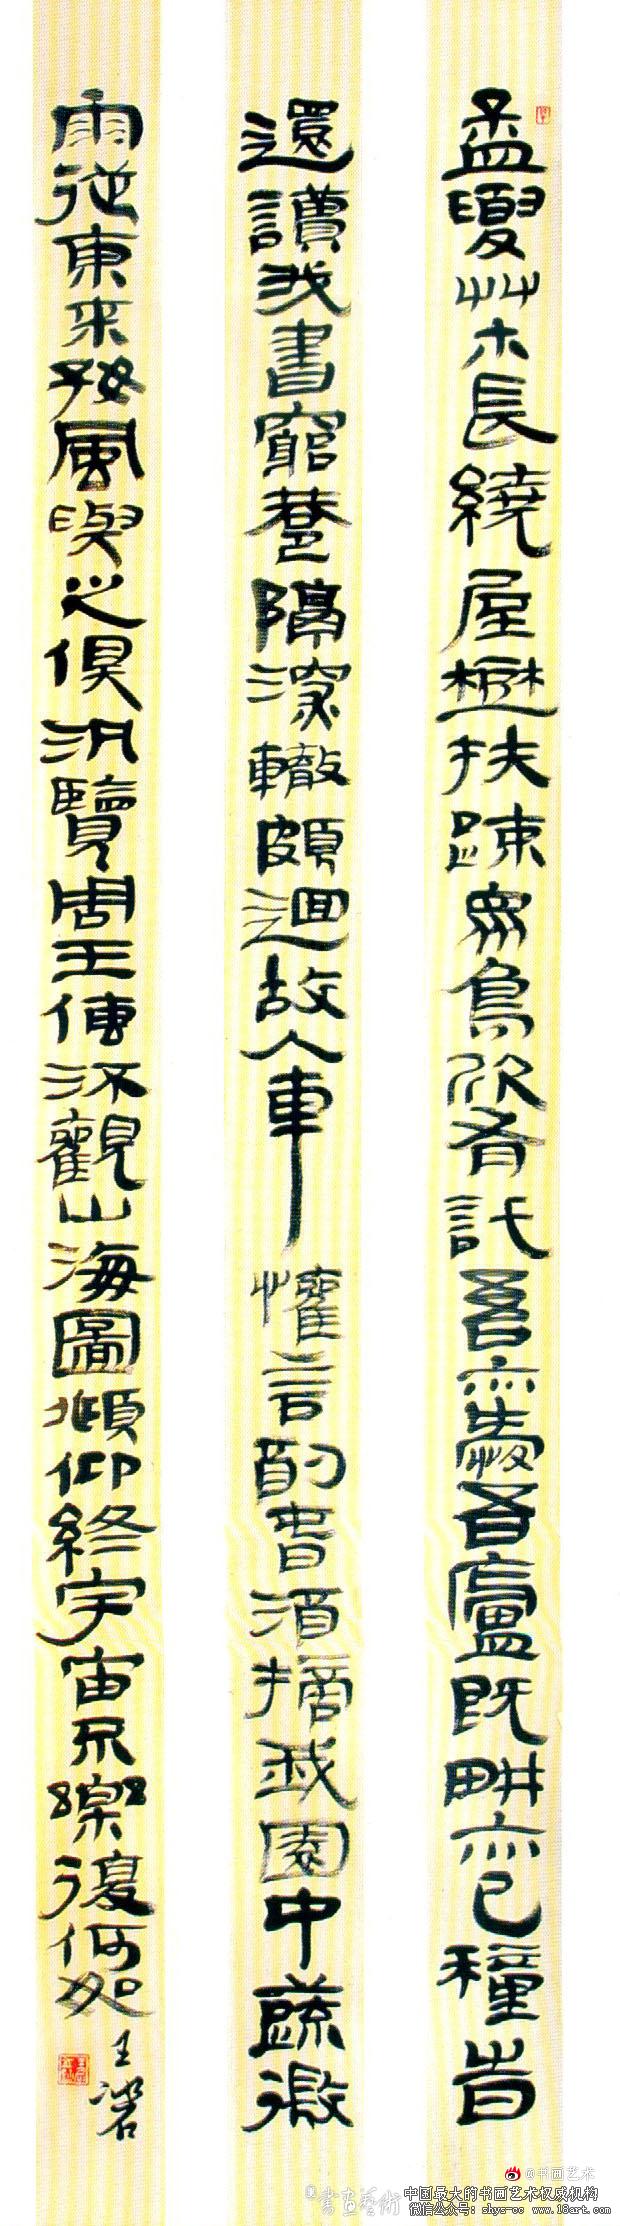 孟夏艸木長繞屋樹扶疎眾鳥欣有託吾亦愛吾廬既畊亦已種旹
還讀我書窮巷隔深轍頗迴故人車懽言酌萅酒摘我園中蔬微
雨從東來好風與之俱汎覽周王傳流觀山海圖頫仰終宇宙不樂復何如
王
@书画艺术
書畫藝術
中国最大的书画艺术权威机构
微信公众号: shys-cc www.18art.com